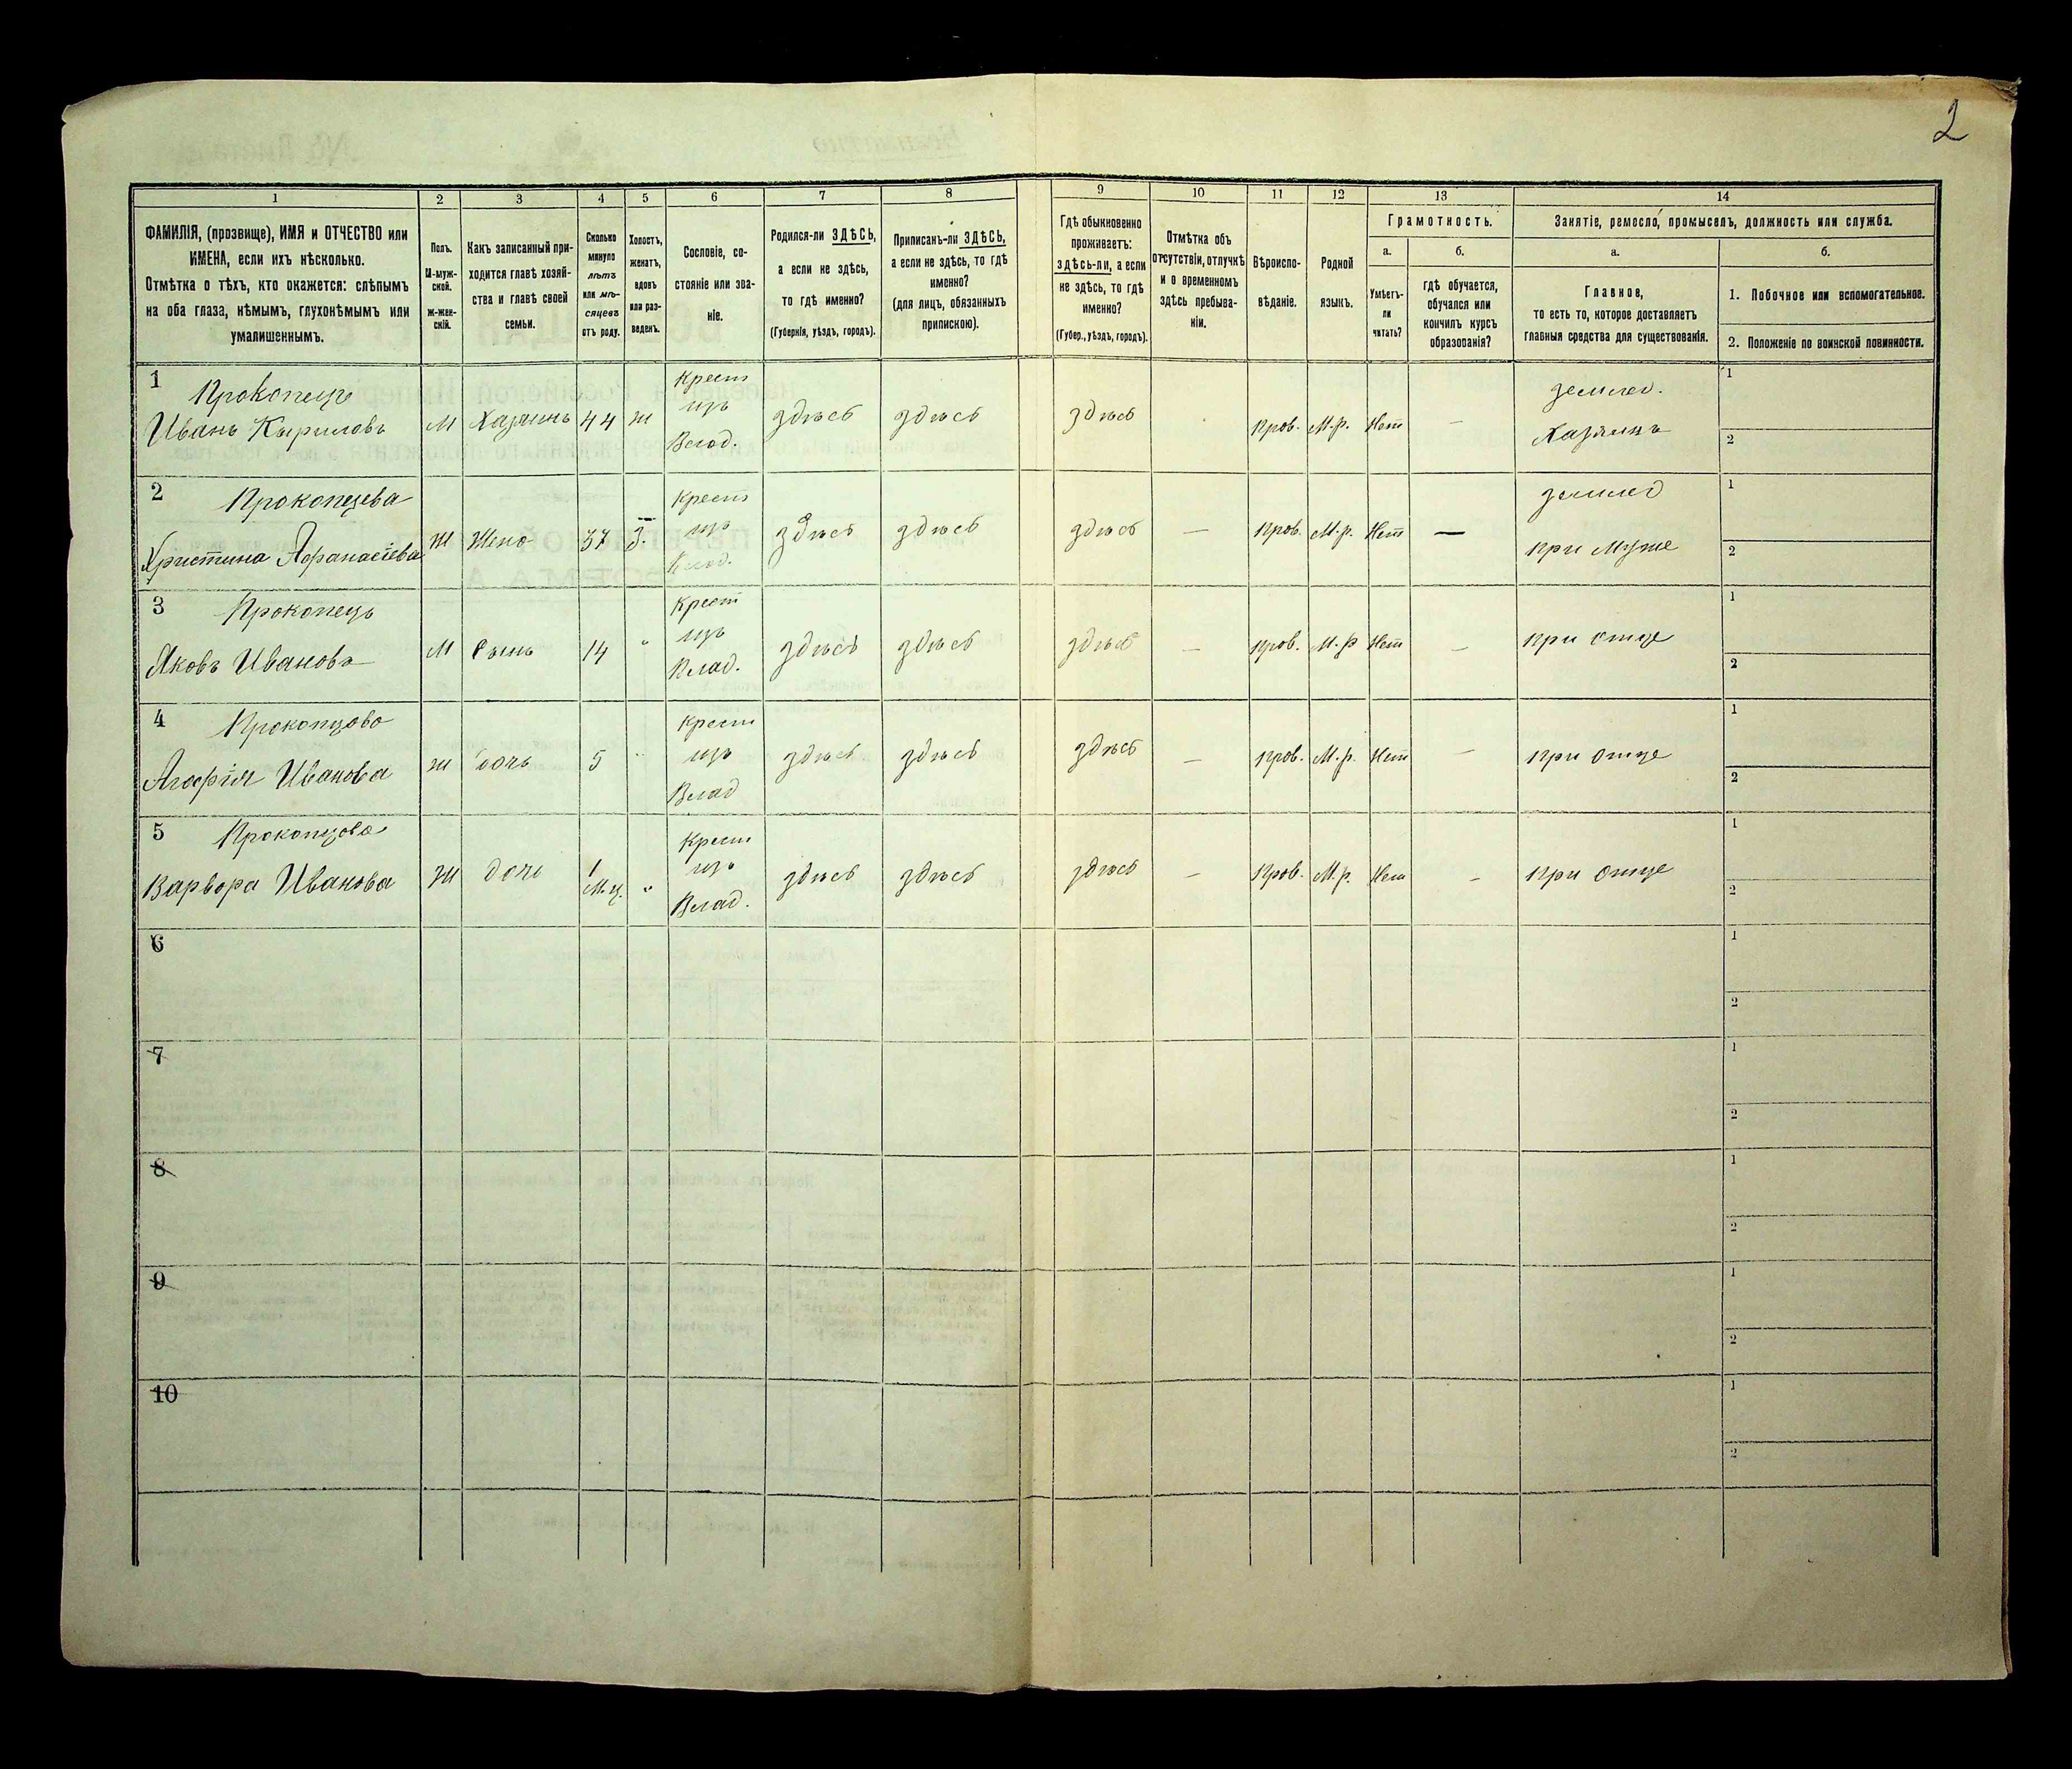 2
1 2 3 4 5 6 7 8 9 10 11 12 13 14
ФАМИЛІЯ, (прозвище), ИМЯ и ОТЧЕСТВО или
ИМЕНА, если ихъ нѣсколько.
Отмѣтка о тѣхъ, кто окажется: слѣпымъ
на оба глаза, нѣмымъ, глухонѣмымъ или
умалишеннымъ.
Полъ.
М-муж-
ской.
ж-жен-
скій.
Какъ записанный при-
ходится главѣ хозяй-
ства и главѣ своей
семьи.
Сколько
минуло
лѣтъ
или мѣ-
сяцевъ
отъ роду.
Холостъ,
женатъ,
вдовъ
или раз-
веденъ.
Сословіе, со-
стояніе или зва-
ніе.
Родился-ли ЗДѢСЬ,
а если не здѣсь,
то гдѣ именно?
(Губернія, уѣздъ, городъ).
Приписанъ-ли ЗДѢСЬ,
а если не здѣсь, то гдѣ
именно?
(для лицъ, обязанныхъ
припискою).
Гдѣ обыкновенно
проживаетъ:
здѣсь-ли, а если
не здѣсь, то гдѣ
именно?
(Губер., уѣздъ, городъ).
Отмѣтка объ
отсутствіи, отлучкѣ
и о временномъ
здѣсь пребыва-
ніи.
Вѣроиспо-
вѣданіе.
Родной
языкъ.
Грамотность.
а.
Умѣетъ-
ли
читать?
б.
гдѣ обучается,
обучался или
кончилъ курсъ
образованія?
Занятіе, ремесло, промыселъ, должность или служба.
а.
Главное,
то есть то, которое доставляетъ
главныя средства для существованія.
б.
1. Побочное или вспомогательное.
2. Положеніе по воинской повинности.
1 Прокопецъ Крест землед. 1
Иванъ Кыриловъ М Хазяинъ 44 ж изъ здѣсь здѣсь здѣсь Прав. М.р. Нет — Хазяинъ
Влад. 2
2 Прокопцева Крест землед 1
Христина Афанасіева Ж Жена 37 З. изъ здѣсь здѣсь здѣсь — Прав. М.р. Нет — при муже
Влад. 2
3 Прокопецъ Крест 1
Яковъ Ивановъ М Сынъ 14 " изъ здѣсь здѣсь здѣсь — Прав. М.р Нет — при отце
Влад. 2
4 Прокопцова Крест 1
Агафія Иванова ж дочь 5 " изъ здѣсь здѣсь здѣсь — Прав. М.р. Нет — при отце
Влад 2
5 Прокопцова Крест 1
Варвора Иванова Ж дочь 1 м.ц. " изъ здѣсь здѣсь здѣсь — Прав. М.р. Нет — при отце
Влад. 2
6 1
2
7 1
2
8 1
2
9 1
2
10 1
2